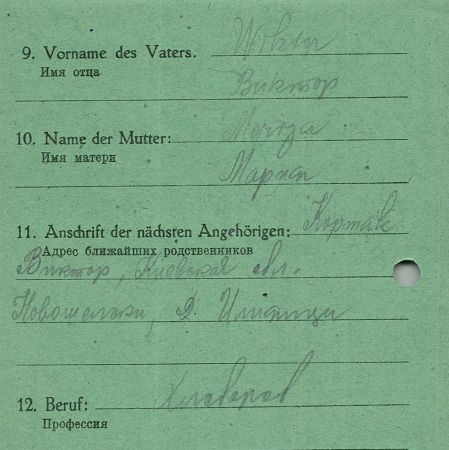 9. Vorname des Vaters. Wiktor
Имя отца
Виктор
10. Name der Mutter:
Имя матери
Мария
11. Anschrift der nächsten Angehörigen: Кортак
Адрес ближайших родственников
Виктор, Киевская обл.
Новошепеличи, д.
12. Beruf: Хлебороб
Профессия